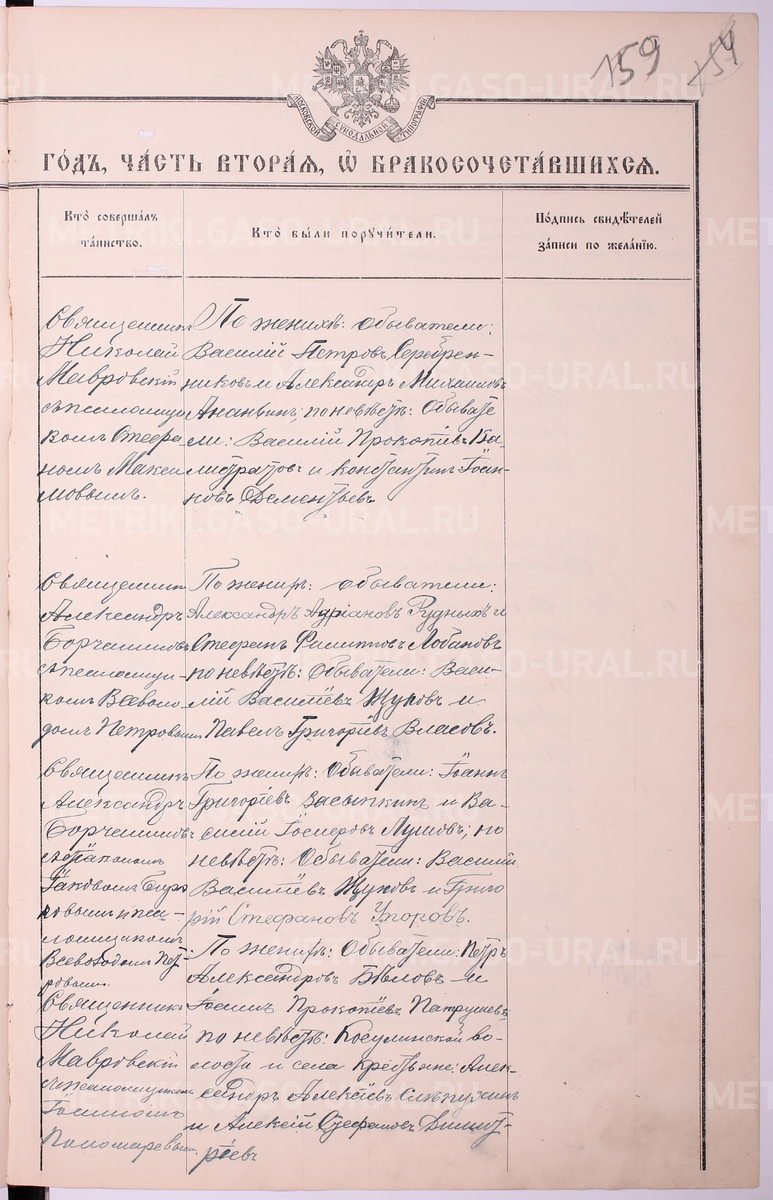 159
154
МОСКОВСКОЙ СѴНОДАЛЬНОЙ ТИПОГРАФІИ
ГО́ДЪ, ЧА́СТЬ ВТОРА́Я, Ѡ БРАКОСОЧЕТА́ВШИХСЯ.
Кто̀ соверша́лъ та́инство.
Кто̀ бы́ли поручи́тели.
По́дпись свидѣ́телей за́писи по жела́нію.
Священникъ
Николай
Мавровскій
съ псаломщи
комъ Стефа
номъ Макси
мовымъ.
По женихѣ: обыватели:
Василій Петровъ Серебрен-
никовъ и Александръ Михаиловъ
Ананьинъ; по невѣстѣ: Обывате
ли: Василій Прокопіевъ Ка-
листратовъ и Константинъ Іоан-
новъ Дементьевъ
Священникъ
Александръ
съ псаломщи-
комъ Всеволо
домъ Петровымъ
По женихѣ: обыватели:
Александръ Адріановъ Рудныхъ и
Стефанъ Филипповъ Лобановъ
по невѣстѣ: Обыватели: Васи-
лій Васильевъ Щуковъ и
Павелъ Григорьевъ Власовъ.
Священникъ
Александръ
съ діакономъ
Іаковомъ Бирю
ковымъ и пса-
ломщикомъ
Всеволодомъ Пет-
ровымъ.
По женихѣ: Обыватели: Іоаннъ
Григорьевъ Засыпкинъ и Ва-
силій по
невѣстѣ: Обыватели: Василій
Васильевъ Щуковъ и Григо
рій Стефановъ Угоровъ.
Священникъ
Николай
Мавровскій
съ псаломщикомъ
Іосифомъ
Пономаревымъ.
По женихѣ: Обыватели: Петръ
Александровъ Бѣловъ и
Іосифъ Прокопіевъ Патрушевъ
по невѣстѣ: Косулинской во-
лости и села крестьяне: Алек-
сандръ Алексѣевъ Слѣпухинъ
и Алексій Стефановъ Димит-
ріевъ
METRIKI.GASO-URAL.RU